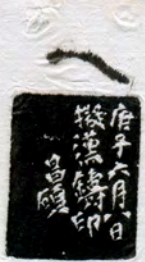 庚子六月八日
擬漢鑄印
昌碩